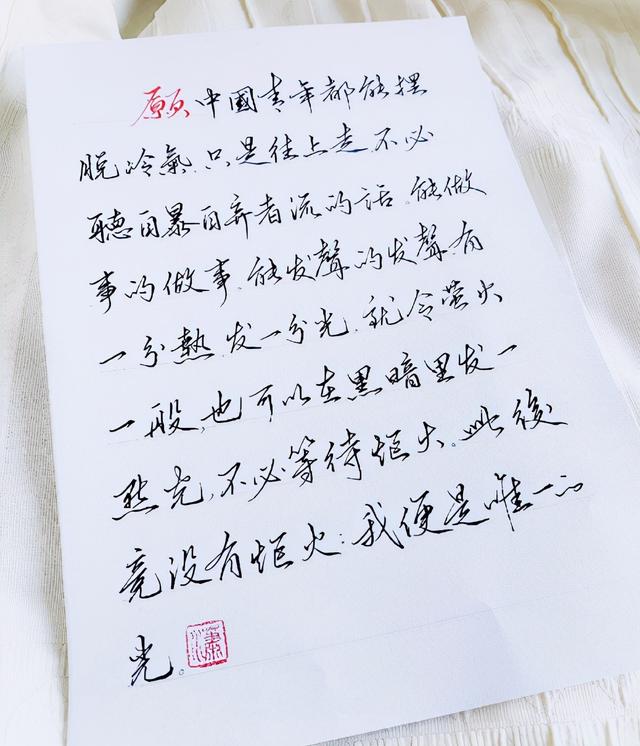 願中國青年都能摆
脱冷氣只是往上走,不必
聽自暴自弃者流的话.能做
事的做事,能发聲的发聲.有
一分熱,发一分光,就令萤火
一般,也可以在黑暗里发一
點光,不必等待炬火.此後
竟没有炬火:我便是唯一的
光。
瀟